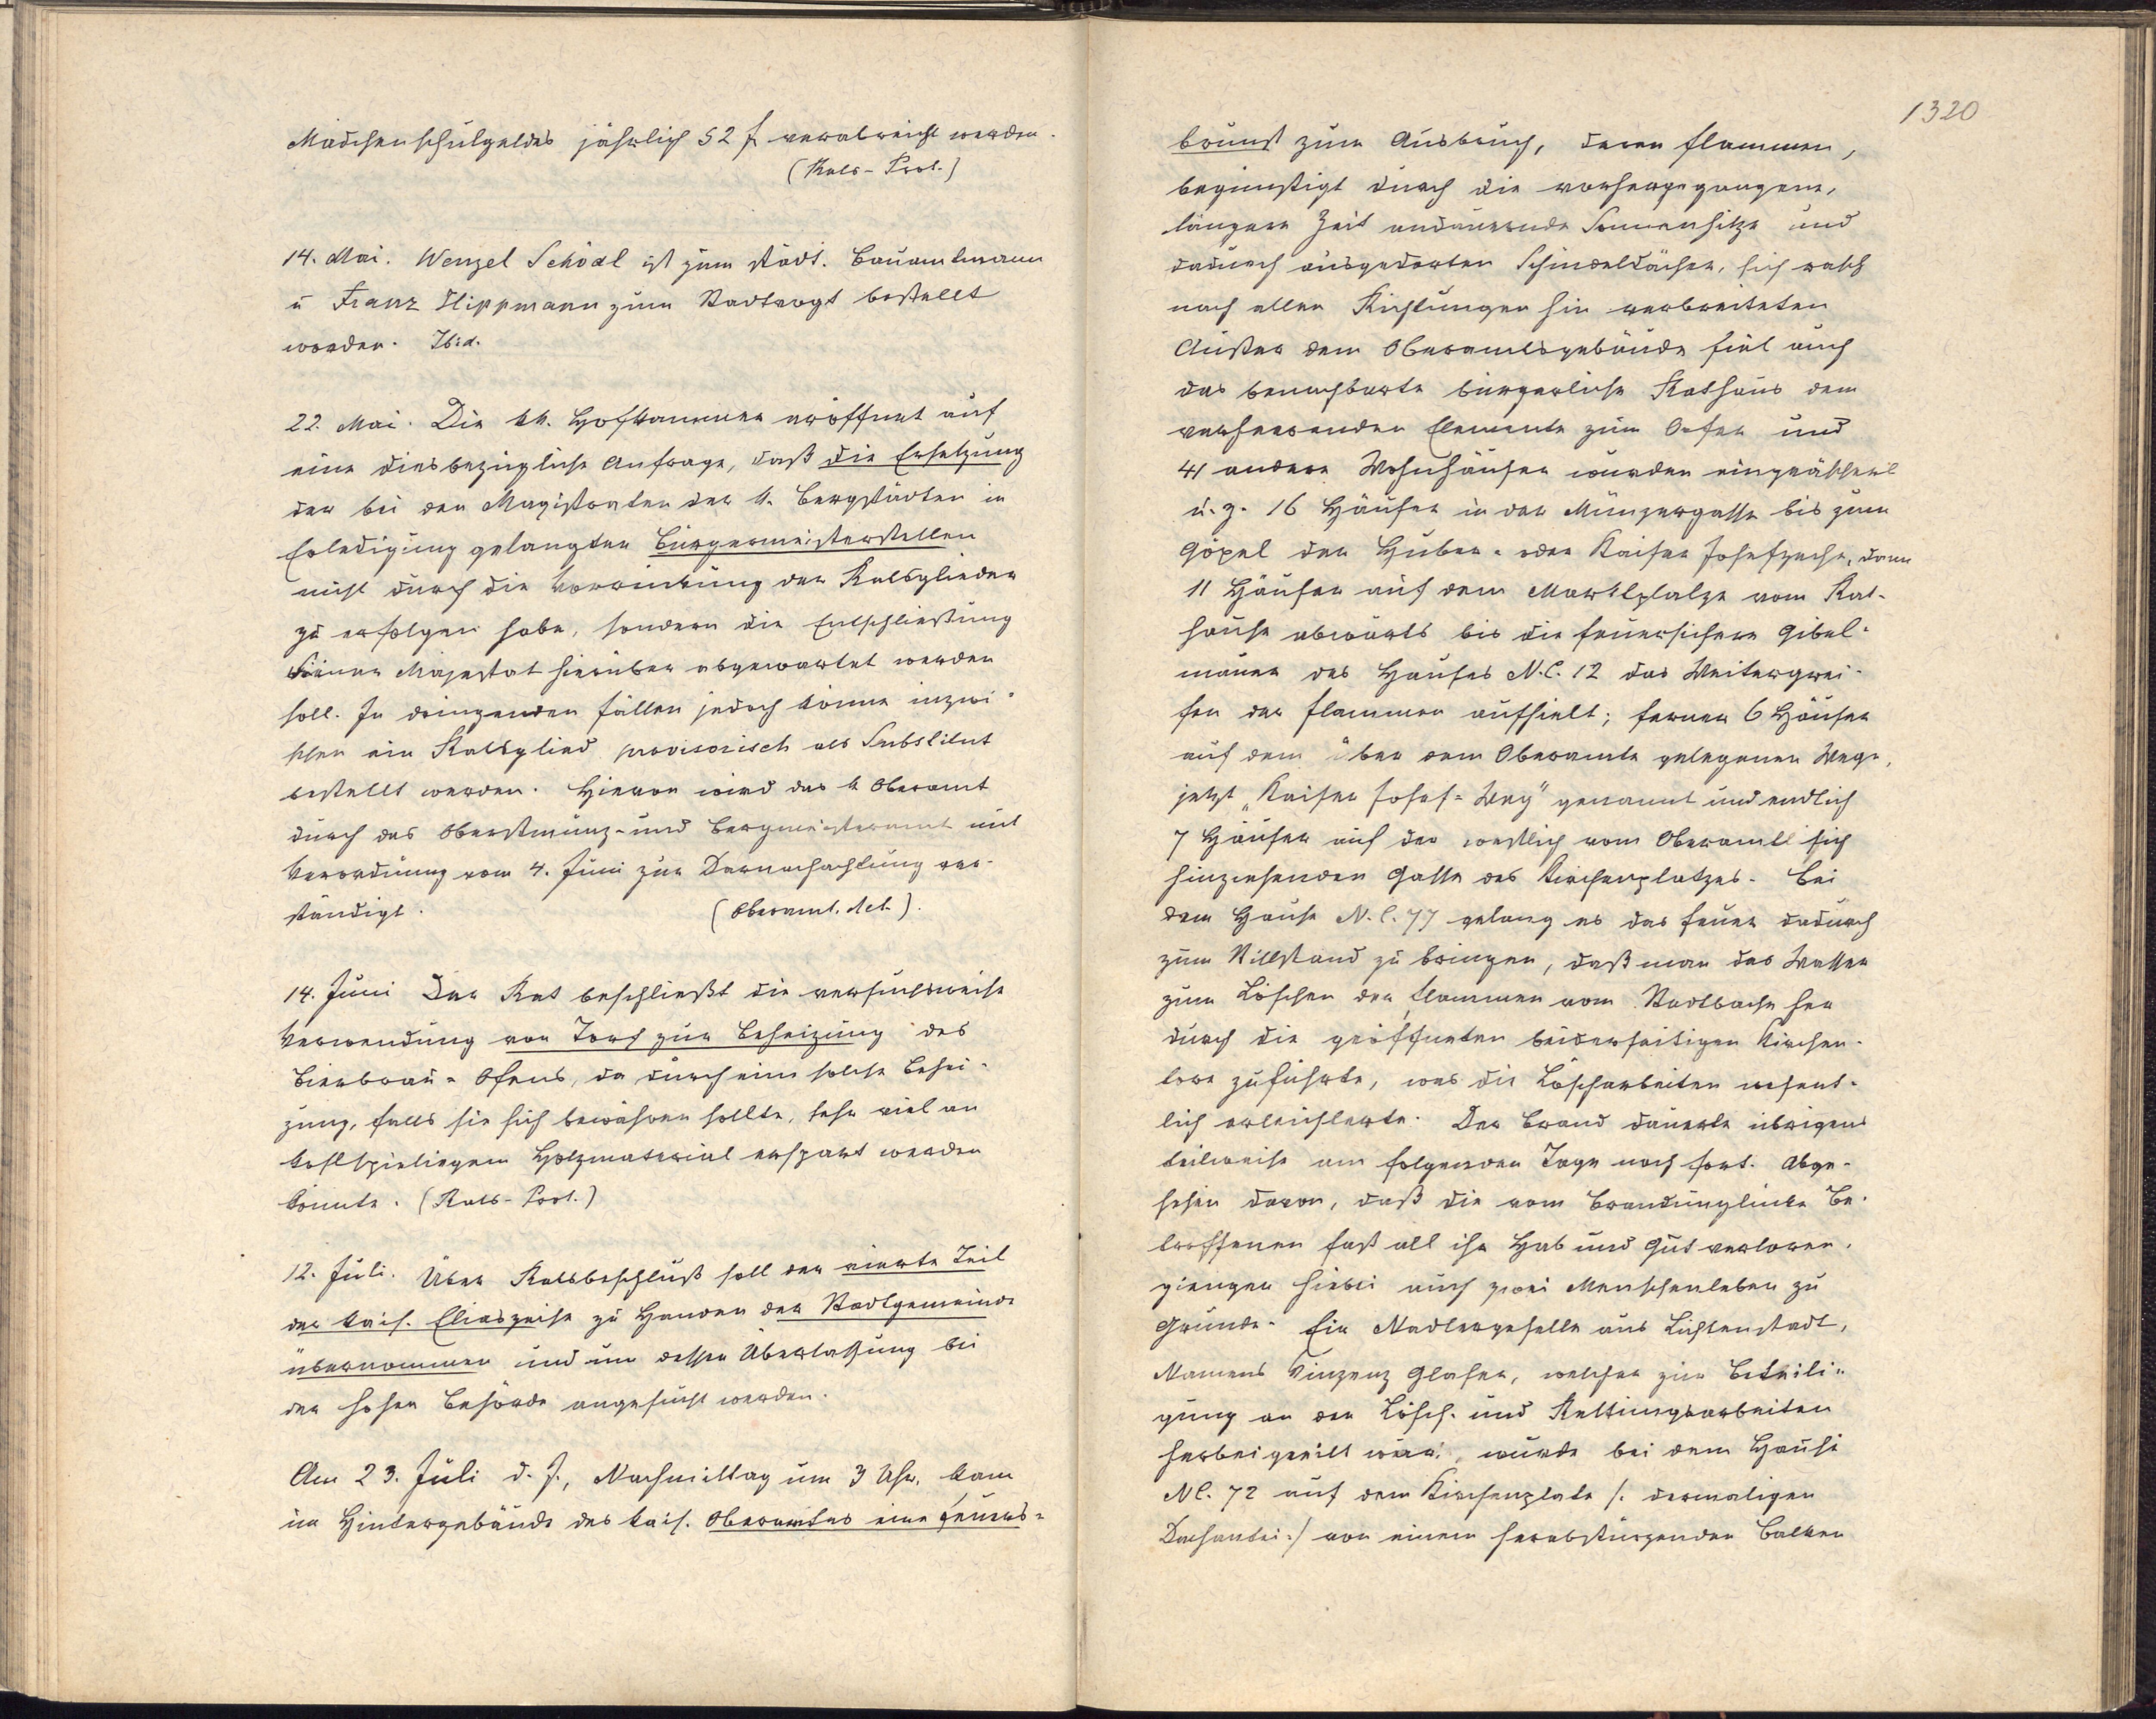 Mädchenschulgeldes jährlich 52 f verabreicht werden.
(Rats-Prot.)
14. Mai. Wenzel Schödl ist zum städt. Bauamtmann
u Franz Hippmann zum Stadtvogt bestellt
worden. Ibid.
22. Mai. Die kk. Hofkammer eröffnet auf
eine diesbezügliche Anfrage, daß die Ersetzung
der bei den Magistraten der k. Bergstädten in
Erledigung gelangten Bürgermeisterstellen
nicht durch die Vorrückung der Ratsglieder
zu erfolgen habe, sondern die Entschließung
Seiner Majestät hierüber abgewartet werden
soll. In dringenden Fällen jedoch könne inzwi-
schen ein Ratsglied provisorisch als Substitut
bestellt werden. Hievon wird das k Oberamt
durch das Oberstmünz- und Bergmeisteramt mit
Verordnung vom 4. Juni zur Darnachachtung ver-
ständigt. (Oberamt. Act.).
14. Juni Der Rat beschließt die versuchsweise
Verwendung von Torf zur Beheizung des
Bierbrau-Ofens, da durch eine solche Behei-
zung, falls sie sich bewähren sollte, sehr viel an
kostspieligem Holzmaterial erspart werden
könnte. (Rats-Prot.)
12. Juli. Über Ratsbeschluß soll der vierte Teil
der kais. Eliaszeche zu Handen der Stadtgemeinde
übernommen und um dessen Überlaßung bei
der hohen Behörde angesucht werden.
Am 23. Juli d. J., Nachmittag um 3 Uhr, kam
im Hintergebäude des kais. Oberamtes eine Feuers-
1320
brunst zum Ausbruch, deren Flammen,
begünstigt durch die vorhergegangene,
längere Zeit andauernde Sonnenhitze und
dadurch ausgedorten Schindeldächer, sich rasch
nach allen Richtungen hin verbreiteten
Außer dem Oberamtsgebäude fiel auch
das benachbarte bürgerliche Rathaus dem
verheerenden Elemente zum Opfer und
41 andere Wohnhäuser wurden eingeäschert
u. z. 16 Häuser in der Münzergasse bis zum
Göpel der Huber- oder Kaiser Josefzeche, dann
11 Häuser auf dem Marktplatze vom Rat-
hause abwärts bis die feuersichere Gibel-
mauer des Hauses N.C. 12 das Weitergrei-
fen der Flammen aufhielt; ferner 6 Häuser
auf dem über dem Oberamte gelegenen Wege,
jetzt „Kaiser Josef-Weg" genannt und endlich
7 Häuser auf der westlich vom Oberamte sich
hinziehenden Gasse des Kirchenplatzes. Bei
dem Hause N.C. 77 gelang es das Feuer dadurch
zum Stillstand zu bringen, daß man das Wasser
zum Löschen der Flammen vom Stadtbache her
durch die geöffneten beiderseitigen Kirchen-
tore zuführte, was die Löscharbeiten wesent-
lich erleichterte. Der Brand dauerte übrigens
teilweise am folgenden Tage noch fort. Abge-
sehen davon, daß die vom Brandunglücke Be-
troffenen fast all ihr Hab und Gut verloren,
giengen hiebei auch zwei Menschenleben zu
Grunde. Ein Nadlergeselle aus Lichtenstadt,
Namens Vinzenz Glaser, welcher zur Beteili-
gung an den Lösch- und Rettungsarbeiten
herbeigeeilt war, wurde bei dem Hause
NC. 72 auf dem Kirchenplatze /: dermaligen
Dechantei:/ von einem herabstürzenden Balken